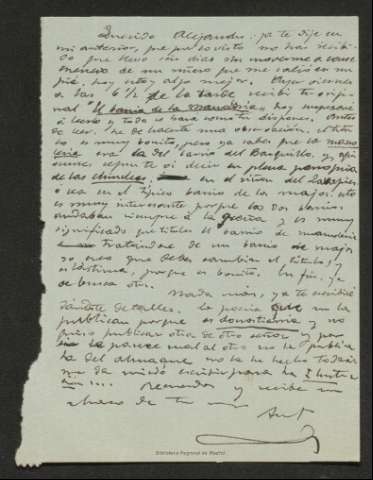 Querido Alejandro: ya te dije en
mi anterior, que por lo visto no has recibi-
do que llevo un días sin moverme a conse-
cuencia de un que me salió en un
pié, hoy estoy algo mejor. Ayer viernes
a las 6½ de la tarde recibí tu origi-
nal "El barrio de la manolería" hoy empezaré
á leerlo y todo se hará como tu dispones. Antes
de leer, he de hacerte una observación. el títu-
lo es muy bonito, pero ya sabes que la mano
lería era la del barrio del Barquillo, y
de las chisperos en el riñon del Lavapies
o sea en el típico barrio de las majas. esto
es muy interesante porque los dos barrios
andaban siempre á la greña y es muy
significado que titules El barrio de manolería
tratándose de un barrio de majos
no creo que debes cambiar el título, y
es lástima, porque es bonito. En fin, ya
se busca otro.
Nada más, ya te escribiré
dándote detalles. La poesía que no la
publican porque es donostiarra y no
quiero publicar otra de otro señor y por
le parece mal al otro no la publica
La del almanaque no la he hecho todavía
me da miedo escribir para la Ilustra
ción .... Recuerdos y recibe un
abrazo de tu
Ant
Biblioteca Regional de Madrid